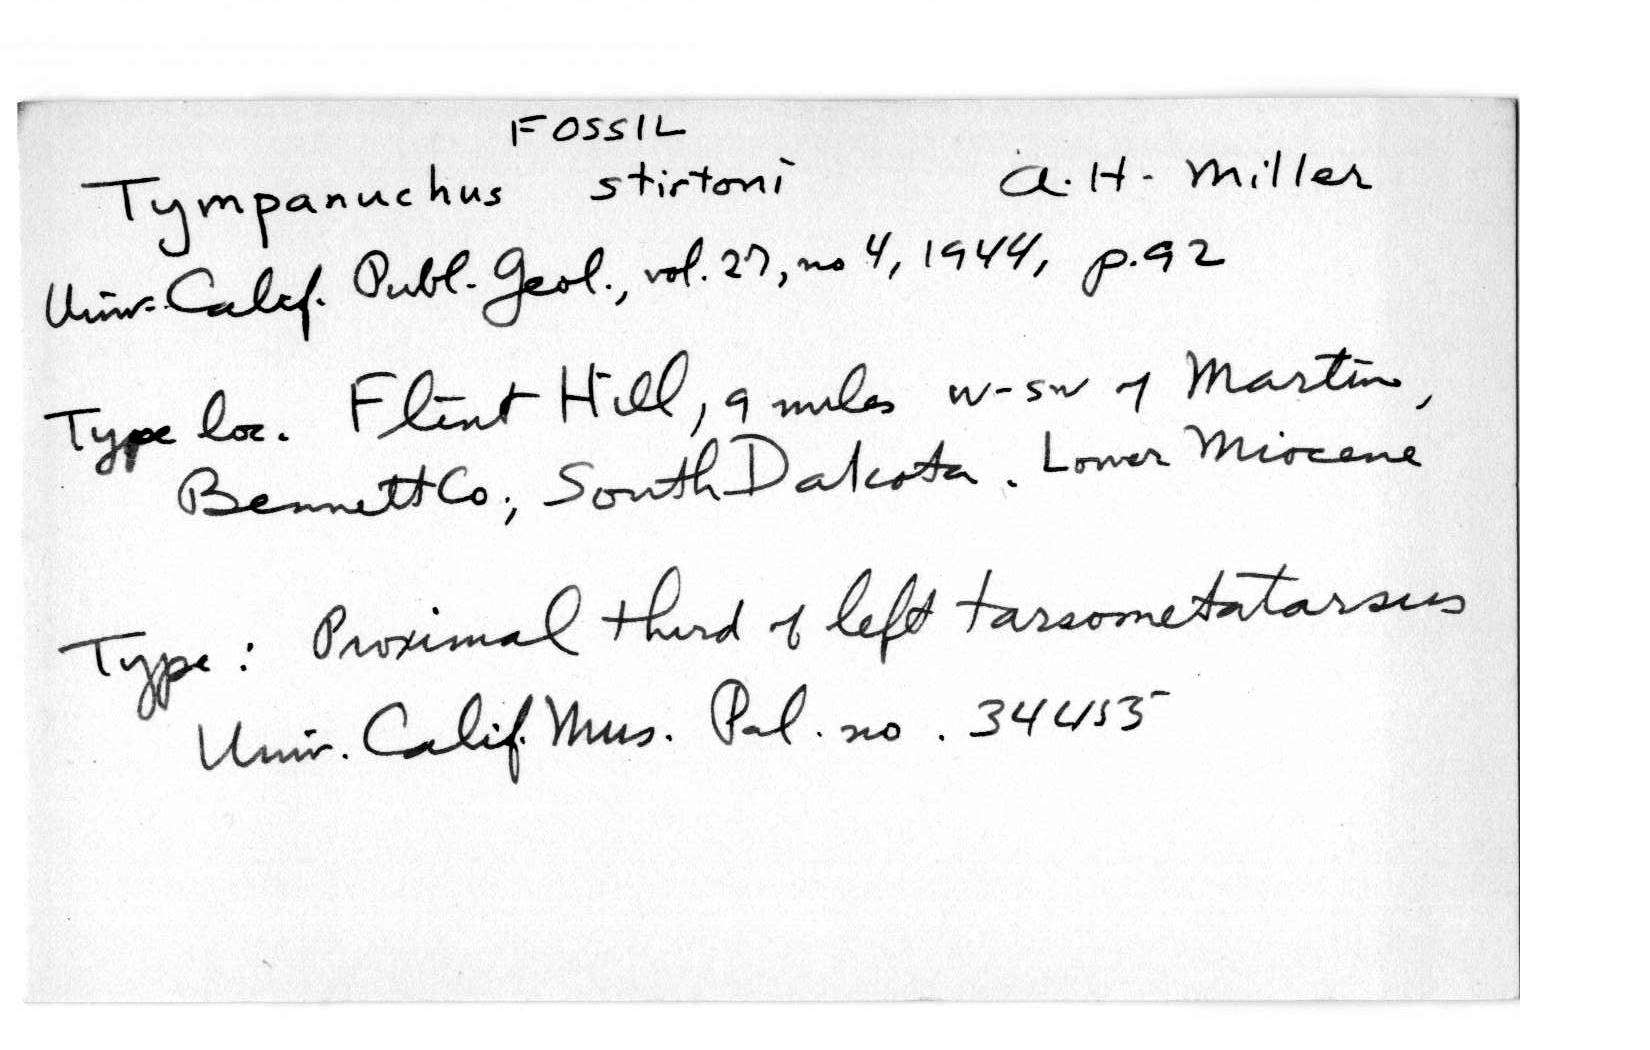 FOSSIL
Tympanuchus stirtoni A. H. Miller
Univ. Calif. Publ. Geol., vol. 27, no 4, 1944, p. 92
Type loc. Flint Hill, 9 miles w-sw of Martin,
Bennett Co., South Dakota. Lower Miocene
Type: Proximal third of left tarsometatarsus
Univ. Calif. Mus. Pal. no. 34455